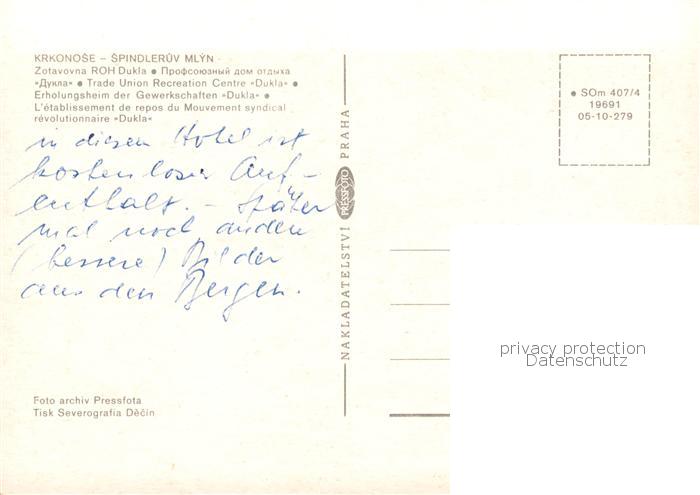 KRKONOŠE – ŠPINDLERŮV MLÝN
Zotavovna ROH Dukla ● Профсоюзный дом отдыха
»Дукла« ● Trade Union Recreation Centre »Dukla« ●
Erholungsheim der Gewerkschaften »Dukla« ●
L'établissement de repos du Mouvement syndical
révolutionnaire »Dukla«
in diesem Hotel ist
kostenloser Auf-
enthalt. – Später
mal noch andere
(bessere) Bilder
aus den Bergen.
Foto archiv Pressfota
Tisk Severografia Děčín
NAKLADATELSTVÍ PRESSFOTO PRAHA
● SOm 407/4
19691
05-10-279
privacy protection
Datenschutz